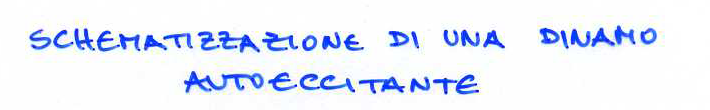 SCHEMATIZZAZIONE DI UNA DINAMO
AUTOECCITANTE